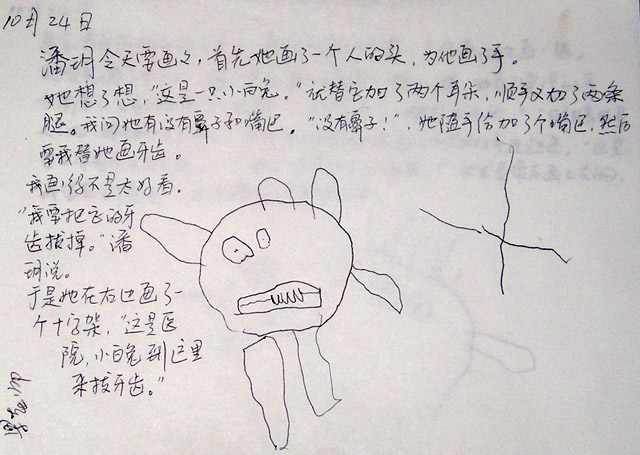 10月24日
潘玥今天要画画，首先她画了一个人的头，为他画了手。
她想了想，“这是一只小白兔。”就替它加了两个耳朵，顺手又加了两条
腿。我问她有没有鼻子和嘴巴。“没有鼻子！”，她随手给加了个嘴巴，然后
要我替她画牙齿。
我画得不是太好看。
“我要把它的牙
齿拔掉。”潘
玥说。
于是她在右边画了一
个十字架，“这是医
院，小白兔到这里
来拔牙齿。”